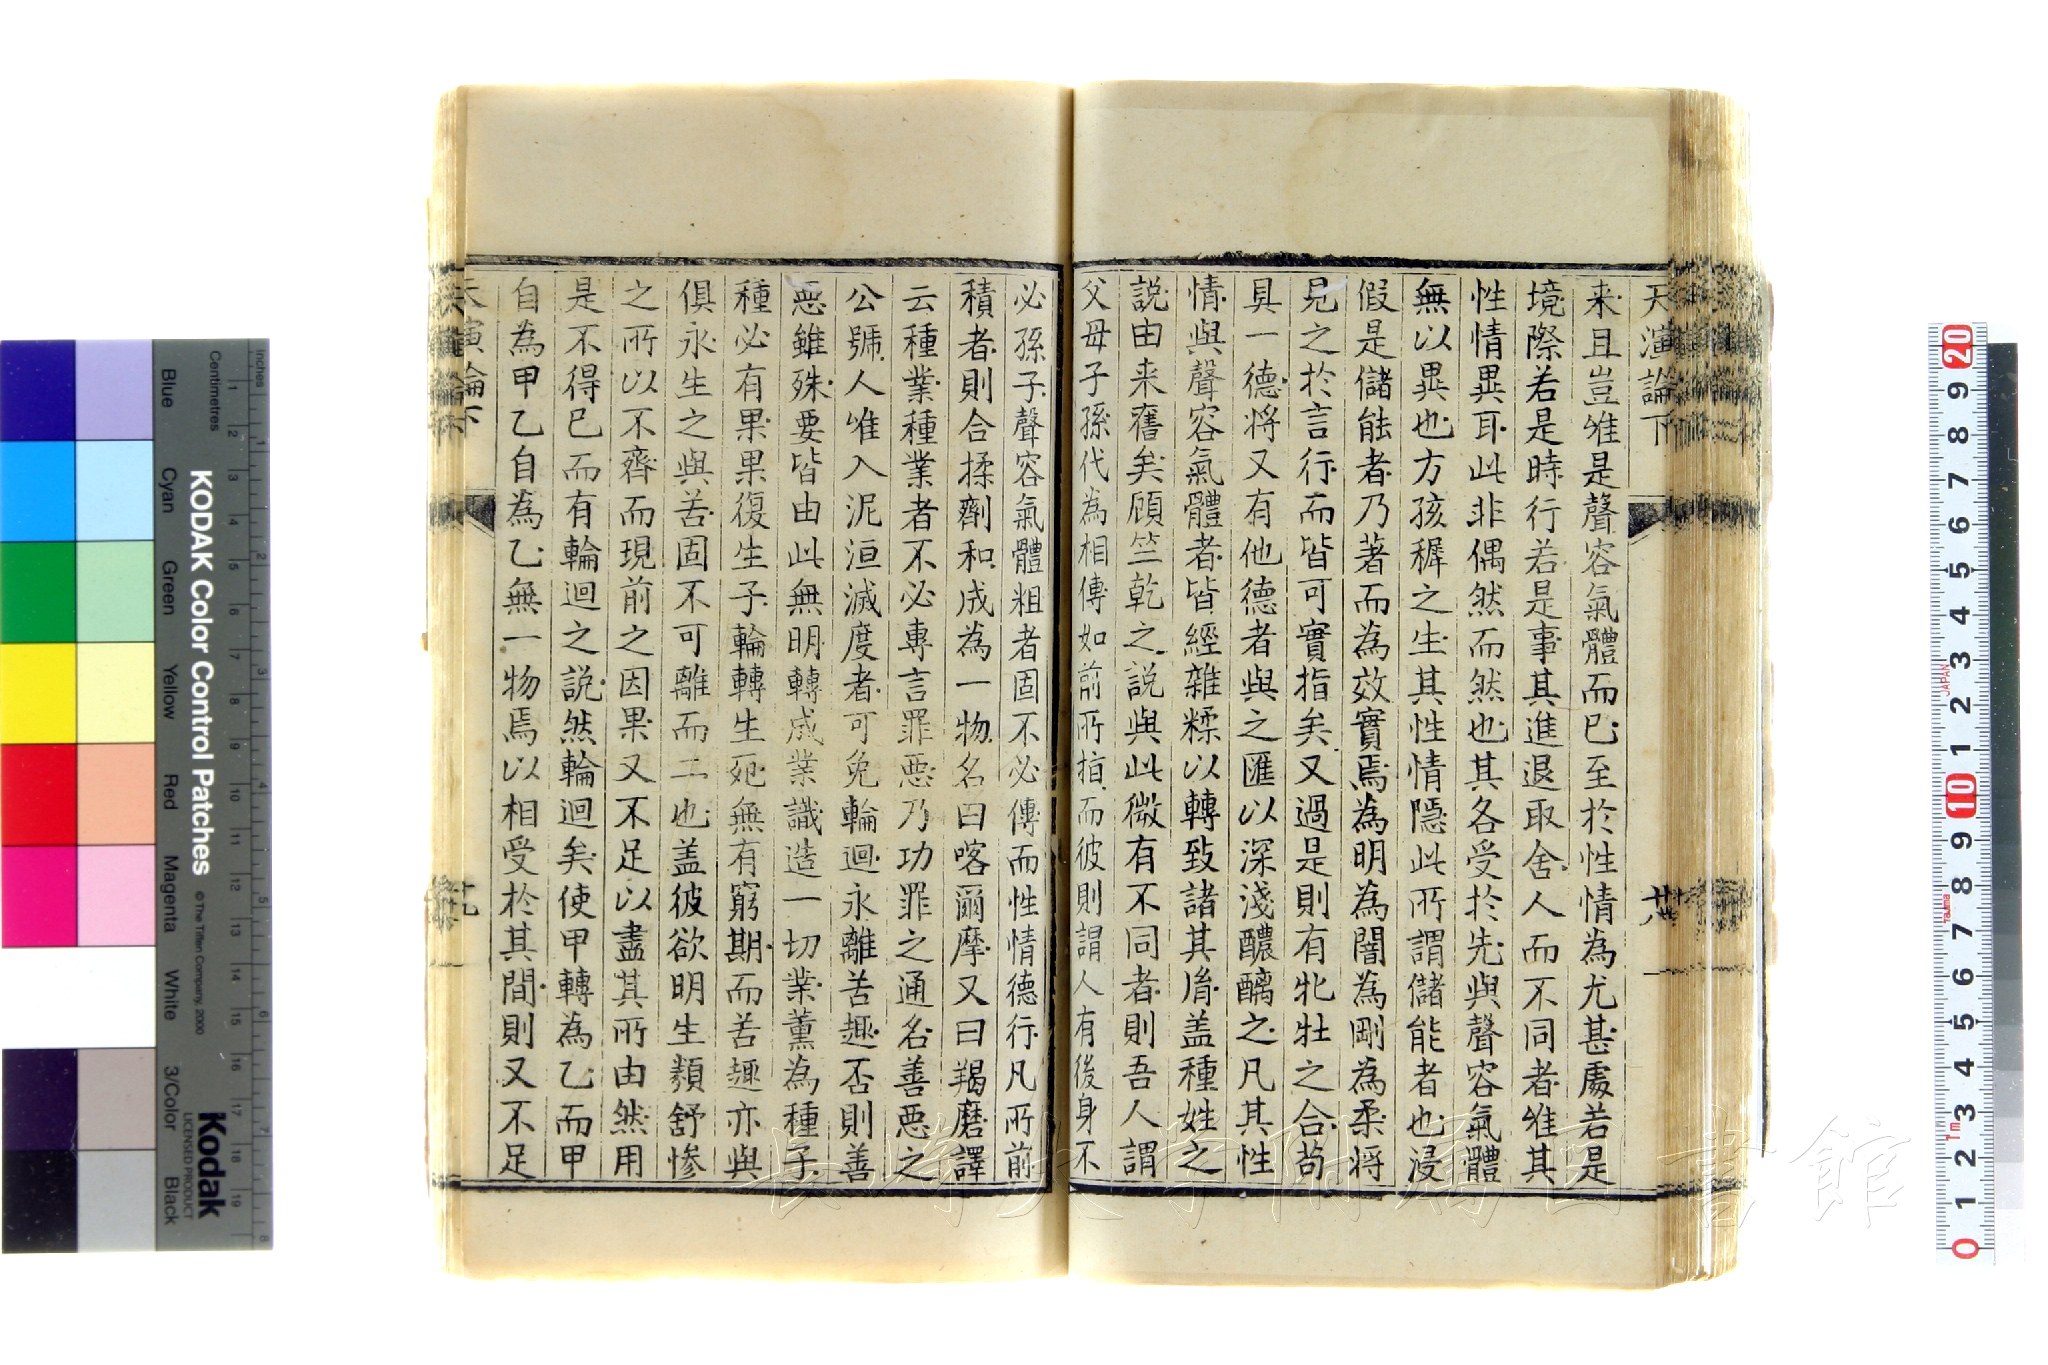 天演論下
卅六
来且豈唯是聲容氣體而已至於性情為尤甚處若是
境際若是時行若是事其進退取舍人而不同者唯其
性情異耳此非偶然而然也其各受於先與聲容氣體
無以異也方孩穉之生其性情隱此所謂儲能者也浸
假是儲能者乃著而為效實焉為明為闇為剛為柔將
見之於言行而皆可實指矣又過是則有牝牡之合茍
具一德將又有他德者與之匯以深淺醲醨之凡其性
情與聲容氣體者皆經雜糅以轉致諸其胤盖種姓之
説由来舊矣顧竺乾之説與此微有不同者則吾人謂
父母子孫代為相傳如前所指而彼則謂人有後身不
必孫子聲容氣體粗者固不必傳而性情德行凡所前
積者則合揉劑和成為一物名曰喀爾摩又曰羯磨譯
云種業種業者不必專言罪惡乃功罪之通名善惡之
公號人唯入泥洹滅度者可免輪迴永離苦趣否則善
惡雖殊要皆由此無明轉成業識造一切業薰為種子
種必有果果復生子輪轉生死無有窮期而苦趣亦與
俱永生之與苦固不可離而二也盖彼欲明生類舒慘
之所以不齊而現前之因果又不足以盡其所由然用
是不得已而有輪迴之説然輪迴矣使甲轉為乙而甲
自為甲乙自為乙無一物焉以相受於其間則又不足
天演論下
長崎大学附属図書館
KODAK Color Control Patches
© The Tiffen Company, 2000
Kodak
LICENSED PRODUCT
Blue Cyan Green Yellow Red Magenta White 3/Color Black
Centimetres 1 2 3 4 5 6 7 8 9 10 11 12 13 14 15 16 17 18 19
Inches 1 2 3 4 5 6 7 8
0 1 2 3 4 5 6 7 8 9 10 1 2 3 4 5 6 7 8 9 20
JAPAN